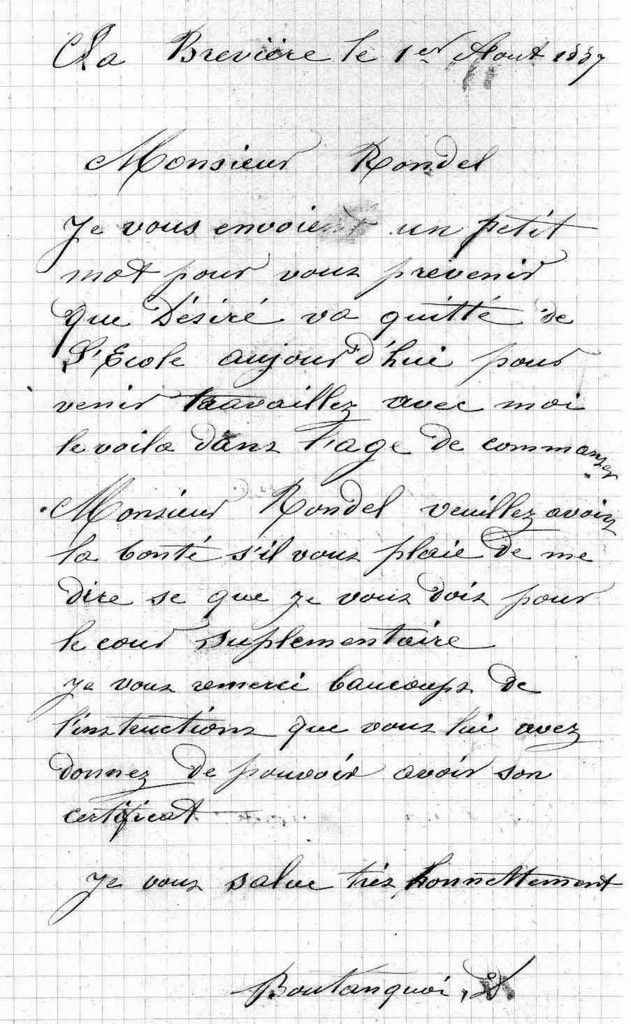 La Brevière le 1er Aout 1887
Monsieur Rondel
Je vous envoie un petit
mot pour vous prevenir
que Désiré va quitté de
L'Ecole aujourd'hui pour
venir travaillez avec moi
le voila dans l'age de commanser
Monsieur Rondel veuillez avoir
la bonté s'il vous plaie de me
dire se que je vous dois pour
le cour suplementaire
je vous remerci baucoups de
l'instructions que vous lui avez
donnez de pouvoir avoir son
certificat
Je vous salue très honnettement
Boutanquoi,